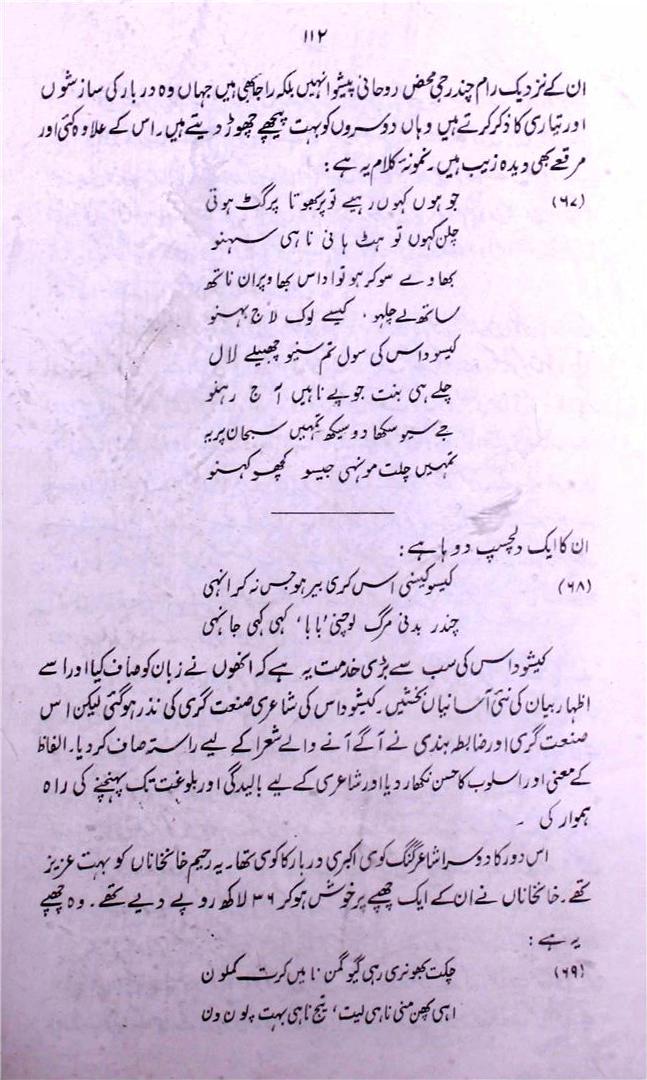 ۱۱۲
ان کے نزدیک رام چندر جی محض روحانی پیشوا نہیں بلکہ راجا بھی ہیں جہاں وہ دربار کی سازشوں
اور تیاری کا ذکر کرتے ہیں وہاں دوسروں کو بہت پیچھے چھوڑ دیتے ہیں۔ اس کے علاوہ کئی اور
مرقعے بھی دیدہ زیب ہیں۔ نمونۂ کلام یہ ہے:
(۶۷) جو ہوں کہوں رہیے تو پربھوتا پرگٹ ہوتی
چلن کہوں تو ہٹ ہانی ناہی سہنو
بھاوے سو کر ہو تو اداس بھاو پران ناتھ
ساتھ لے چلہو، کیسے لوک لاج بہنو
کیسو داس کی سول تم سنیو چھبیلے لال
چلے ہی بنت جو پے ناہیں آج رہنو
جے سیو سکھا دو سیکھ تمہیں سبحان پریہ
تمہیں چلت موہنی جیسو کچھو کہنو
ان کا ایک دلچسپ دوہا ہے:
(۶۸) کیسو کیسنی اس کری بیر ہو جس نہ کرانہی
چندر بدنی مرگ لوچنی 'بابا' کہی کہی جانہی
کیشو داس کی سب سے بڑی خدمت یہ ہے کہ انھوں نے زبان کو صاف کیا اور اسے
اظہار بیان کی نئی آسانیاں بخشیں۔ کیشو داس کی شاعری صنعت گری کی نذر ہو گئی لیکن اس
صنعت گری اور ضابطہ بندی نے آگے آنے والے شعرا کے لیے راستہ صاف کر دیا۔ الفاظ
کے معنی اور اسلوب کا حسن نکھار دیا اور شاعری کے لیے بالیدگی اور بلوغت تک پہنچنے کی راہ
ہموار کی۔
اس دور کا دوسرا شاعر گنگ کوی اکبری دربار کا کوی تھا۔ یہ رحیم خانخاناں کو بہت عزیز
تھے۔ خانخاناں نے ان کے ایک چھپے پر خوش ہو کر ۳۶ لاکھ روپے دیے تھے۔ وہ چھپے
یہ ہے:
(۶۹) چکت بھونری رہی گیو گمن ناہیں کرت کملون
اہی پھن منی ناہی لیت، تیج ناہی بہت پون ون